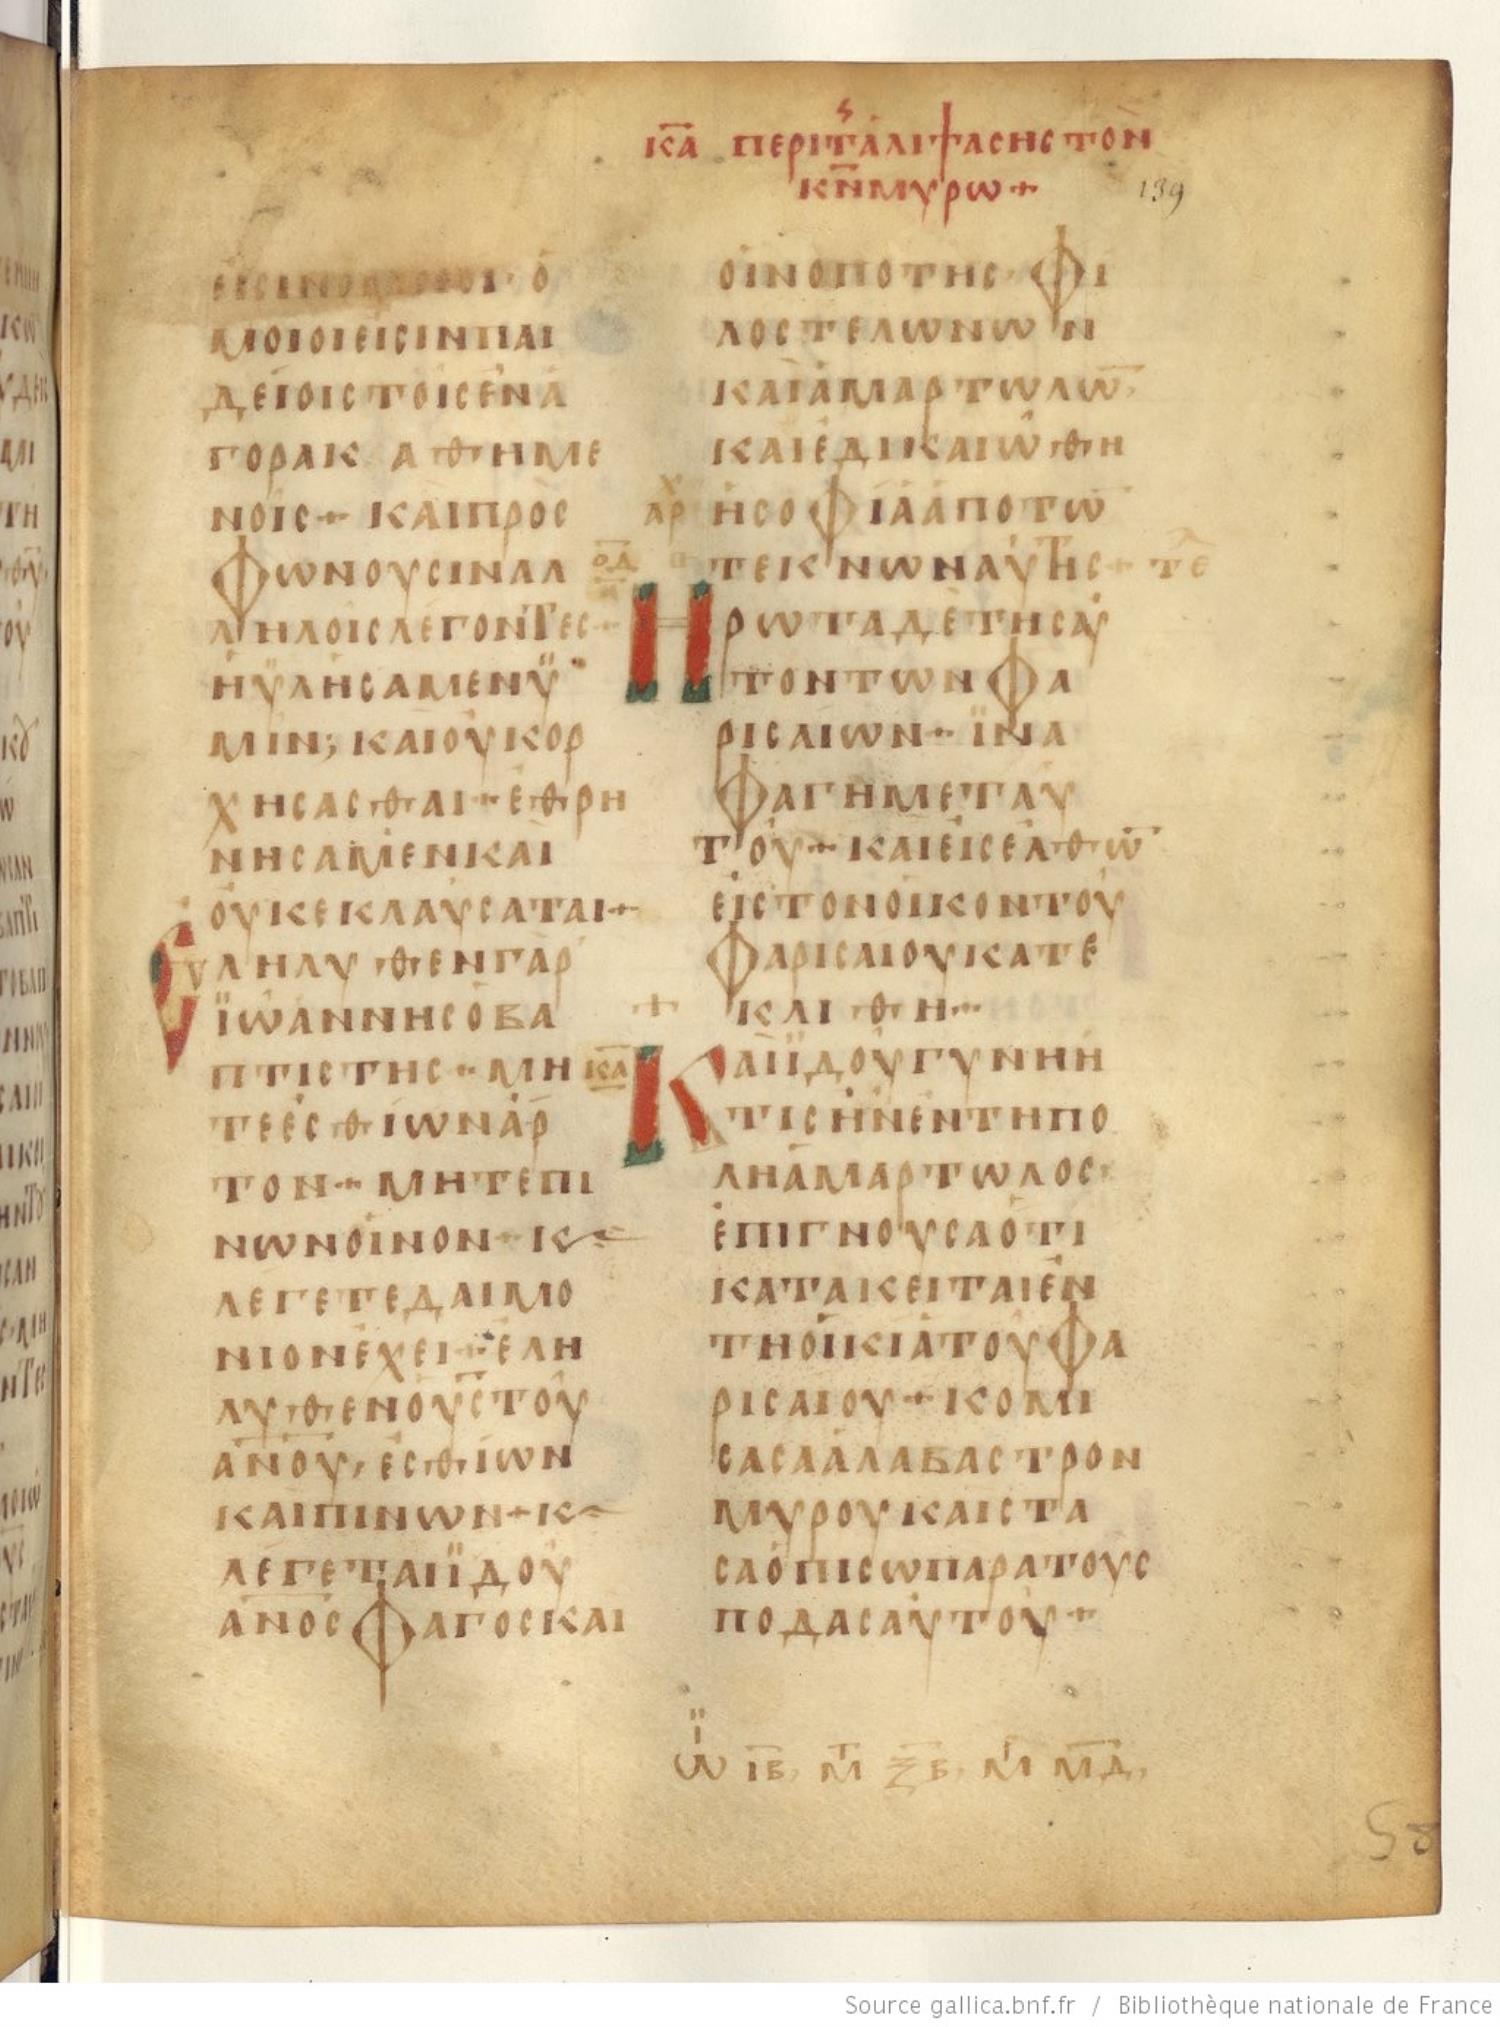 κα περι τ αλιψασης τον
κν μυρω +
139
εισιν ομοιοι· ο
μοιοι εισιν παι
δειοις τοις εν α
γορα κ αθημε
νοις + και προσ
φωνουσιν αλ
ληλοις λεγοντες·
ηυλησαμεν ϋ
μιν; και ουκ ορ
χησασθαι + εθρη
νησαμεν και
ουκ εκλαυσαται +
Εληλυθεν γαρ
ϊωαννης ο βα
πτιστης + μη
τε εσθιων αρ
τον + μητε πι
νων οινον + κ
λεγετε δαιμο
νιον εχει + ελη
λυθεν ο υς του
ανου, εσθιων
και πινων + κ
λεγεται ϊδου
ανος φαγος και
οινοποτης · φι
λος τελωνων
και αμαρτωλω̅
και εδικαιωθη
αρχ η σοφια απο τω̅
τεκνων αυτης + τε
οδ
Ηρωτα δε τις αυ
τον των φα
ρισαιων + ϊνα
φαγη μετ αυ
του + και εισελθω̅
εις τον οικον του
φαρισαιου κατε
κλιθη +
κα
Και ϊδου γυνη η
τις ην εν τη πο
λη αμαρτωλος·
επιγνουσα οτι
κατακειται εν
τη οικια του φα
ρισαιου + κομι
σασα αλαβαστρον
μυρου και στα
σα οπισω παρα τους
ποδας αυτου +
ϊω ιβ, μτ ξβ, μρ μδ,
Source gallica.bnf.fr / Bibliothèque nationale de France